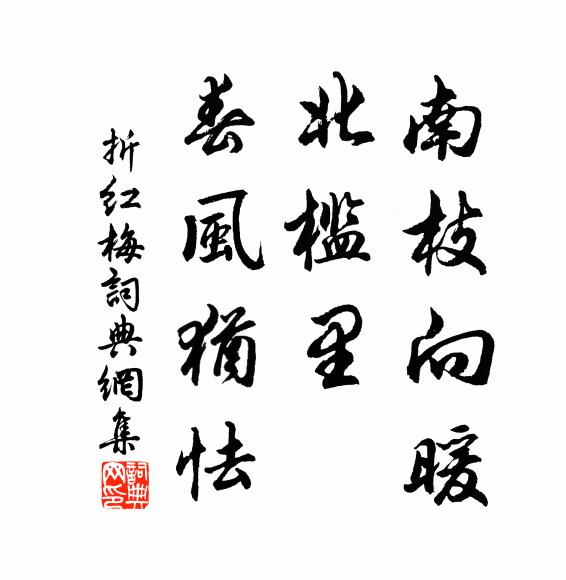 南枝向暖
北檻里
春風猶怯
折红梅詞典網集
詞典网印